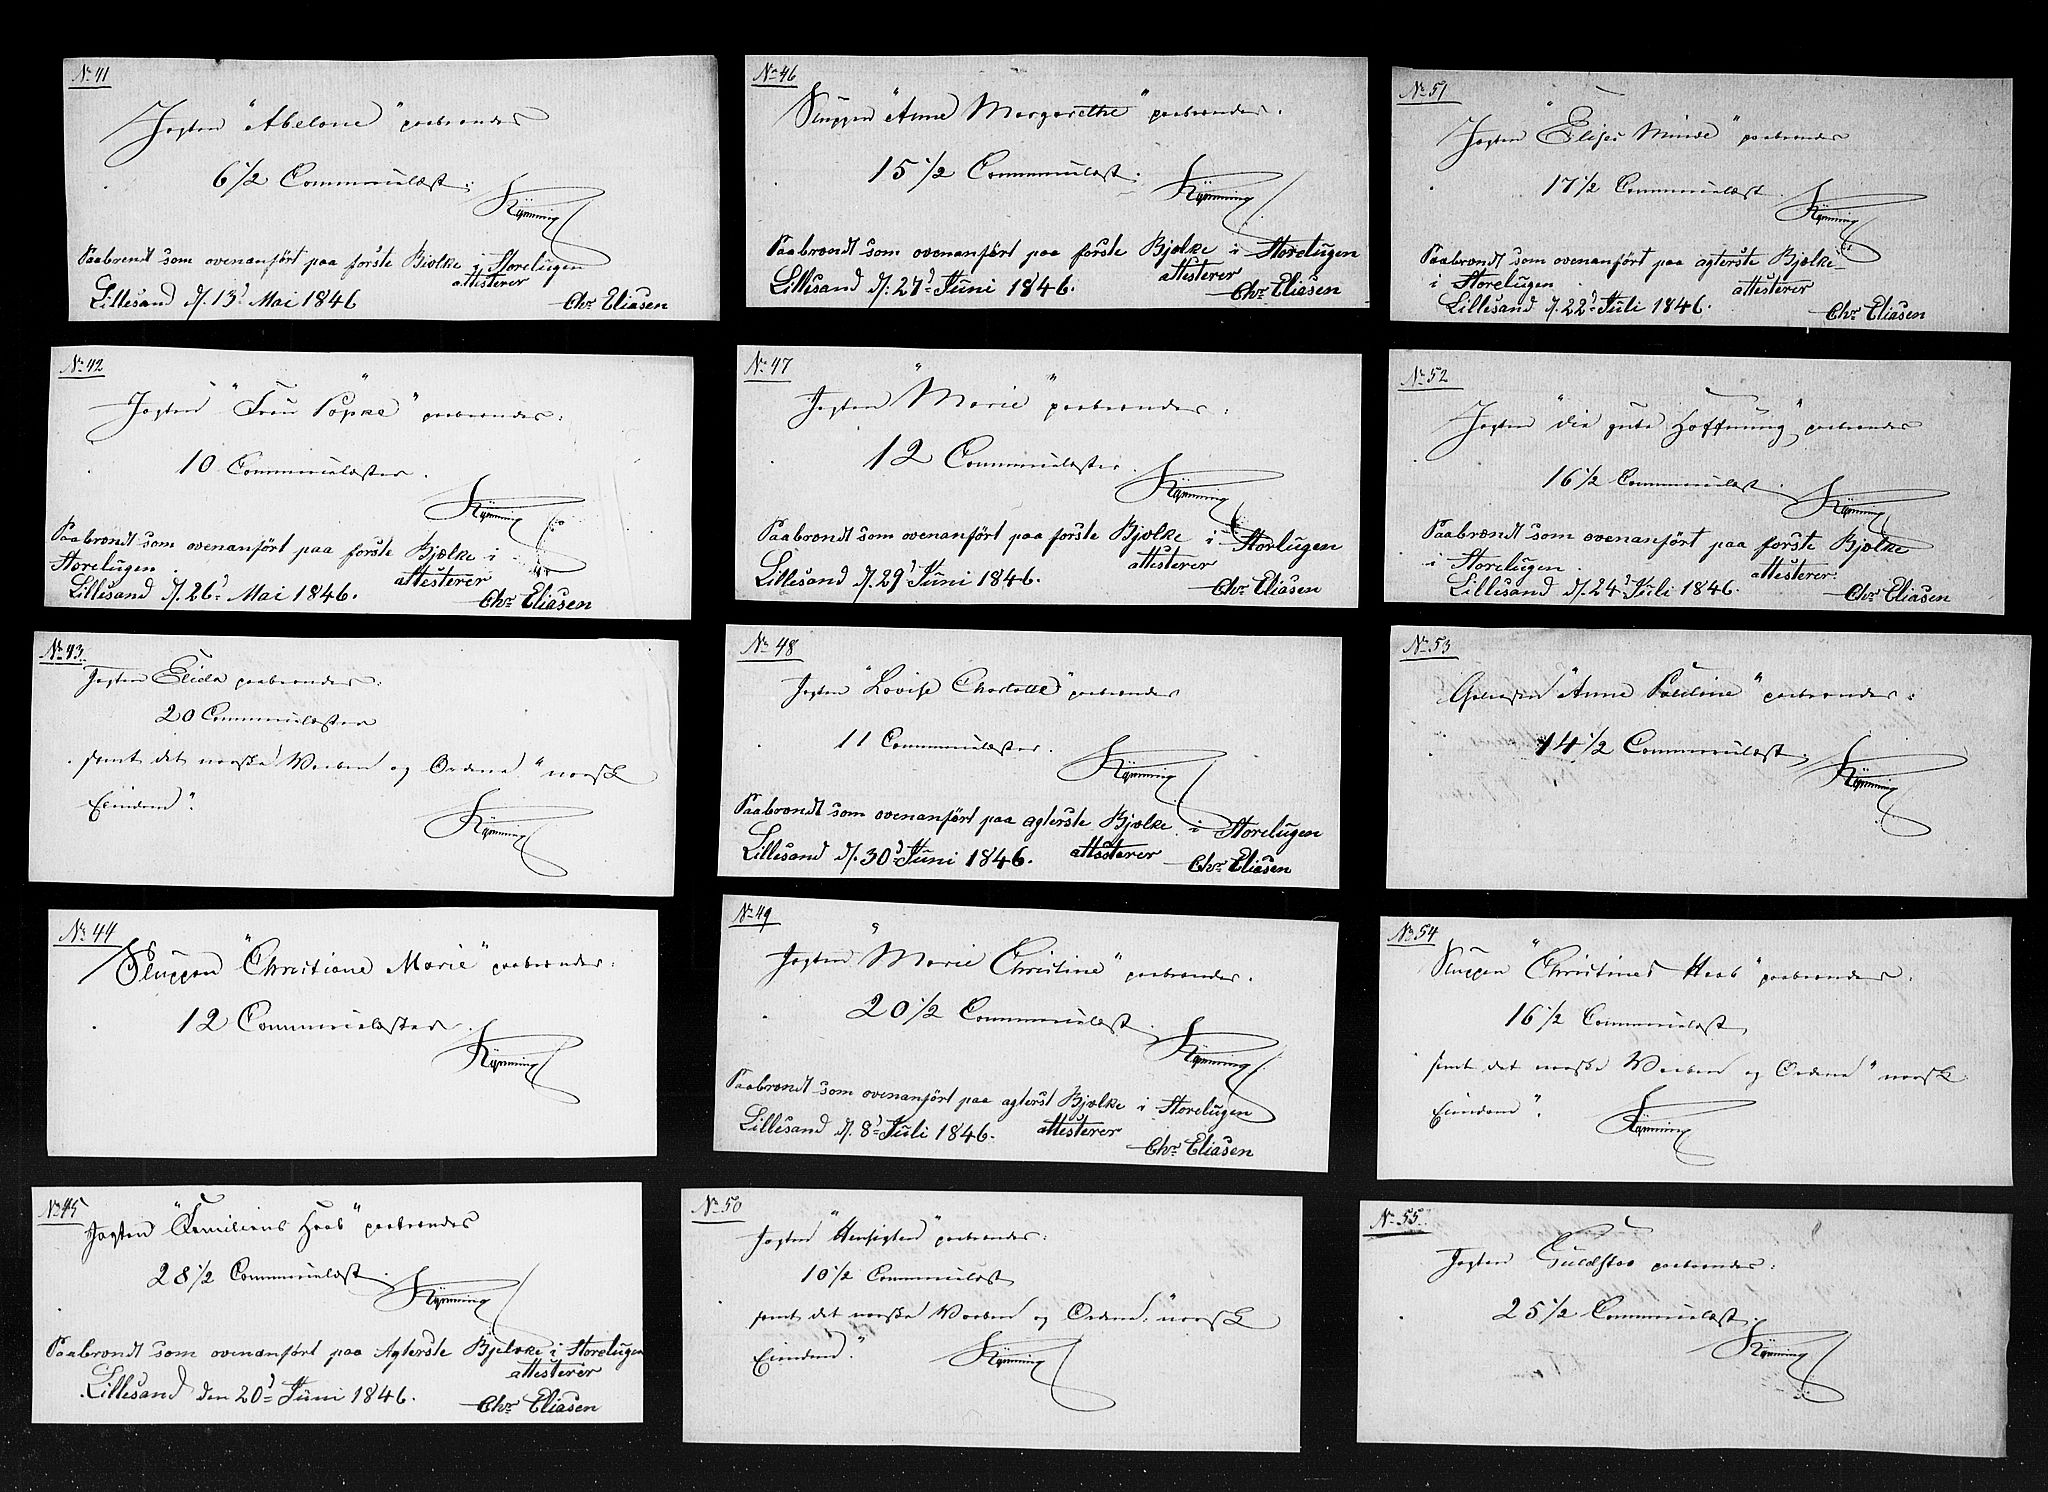 No 41
Jagten "Abelone" paabrændes
6 1/2 Commercelæst.
Kÿnning
Paabrændt som ovenanført paa første Bjælke i Storelugen
attesterer
Lillesand d/. 13d Mai 1846
Chr Eliasen
No 42
Jagten "Frau Pöpke" paabrændes:
10 Commercelæster.
Kÿnning
Paabrændt som ovenanført paa første Bjælke i
Storelugen. attesterer
Lillesand d/. 26d Mai 1846.
Chr Eliasen
No 43.
Jagten Elida paabrændes:
20 Commercelæster
samt det norske Vaaben og Ordene "norsk
Eiendom".
Kÿnning
No 44
Sluppen "Christiane Marie" paabrændes:
12 Commercelæster.
Kÿnning
No 45
Jagten "Familiens Haab" paabrændes
28 1/2 Commercelæst.
Kÿnning
Paabrændt som ovenanført paa Agterste Bjelke i Storelugen
attesterer
Lillesand den 20d Juni 1846.
Chr Eliasen
No 46
Sluppen "Anne Margarethe" paabrændes:
15 1/2 Commercelæst.
Kÿnning
Paabrændt som ovenanført paa første Bjælke i Storelugen
attesterer
Lillesand d/. 27d Juni 1846.
Chr Eliasen
No 47
Jagten "Marie" paabrændes:
12 Commercelæster.
Kÿnning
Paabrændt som ovenanført paa første Bjælke i Storlugen
attesterer
Lillesand d/. 29d Juni 1846.
Chr Eliasen
No 48
Jagten "Lovise Charlotte" paabrændes
11 Commercelæster.
Kÿnning
Paabrændt som ovenanført paa agterste Bjælke i Storelugen
attesterer
Lillesand d/. 30d Juni 1846.
Chr Eliasen
No 49
Jagten "Marie Christine" paabrændes:
20 1/2 Commercelæst.
Kÿnning
Paabrændt som ovenanført paa agterst Bjælke i Storelugen
Lillesand d/. 8d Juli 1846. attesterer
Chr Eliasen
No 50
Jagten "Hensigten" paabrændes:
10 1/2 Commercelæst
samt det norske Vaaben og Ordene "norsk
Eiendom".
Kÿnning
No 51
Jagten "Elises Minde" paabrændes
17 1/2 Commercelæst.
Kÿnning
Paabrændt som ovenanført paa agterste Bjælke
i Storelugen. attesterer
Lillesand d/. 22d Juli 1846.
Chr Eliasen
No 52
Jagten "die gute Hoffnung" paabrændes
16 1/2 Commercelæst.
Kÿnning
Paabrændt som ovenanført paa første Bjælke
i Storelugen. attesterer.
Lillesand d/. 24d Juli 1846.
Chr Eliasen
No 53
Galeasen "Anne Pauline" paabrændes:
14 1/2 Commercelæst.
Kÿnning
No 54
Sluppen "Christines Haab" paabrændes:
16 1/2 Commercelæst,
samt det norske Vaaben og Ordene "norsk
Eiendom".
Kÿnning
No 55.
Jagten Guldstad paabrændes:
25 1/2 Commercelæst.
Kÿnning